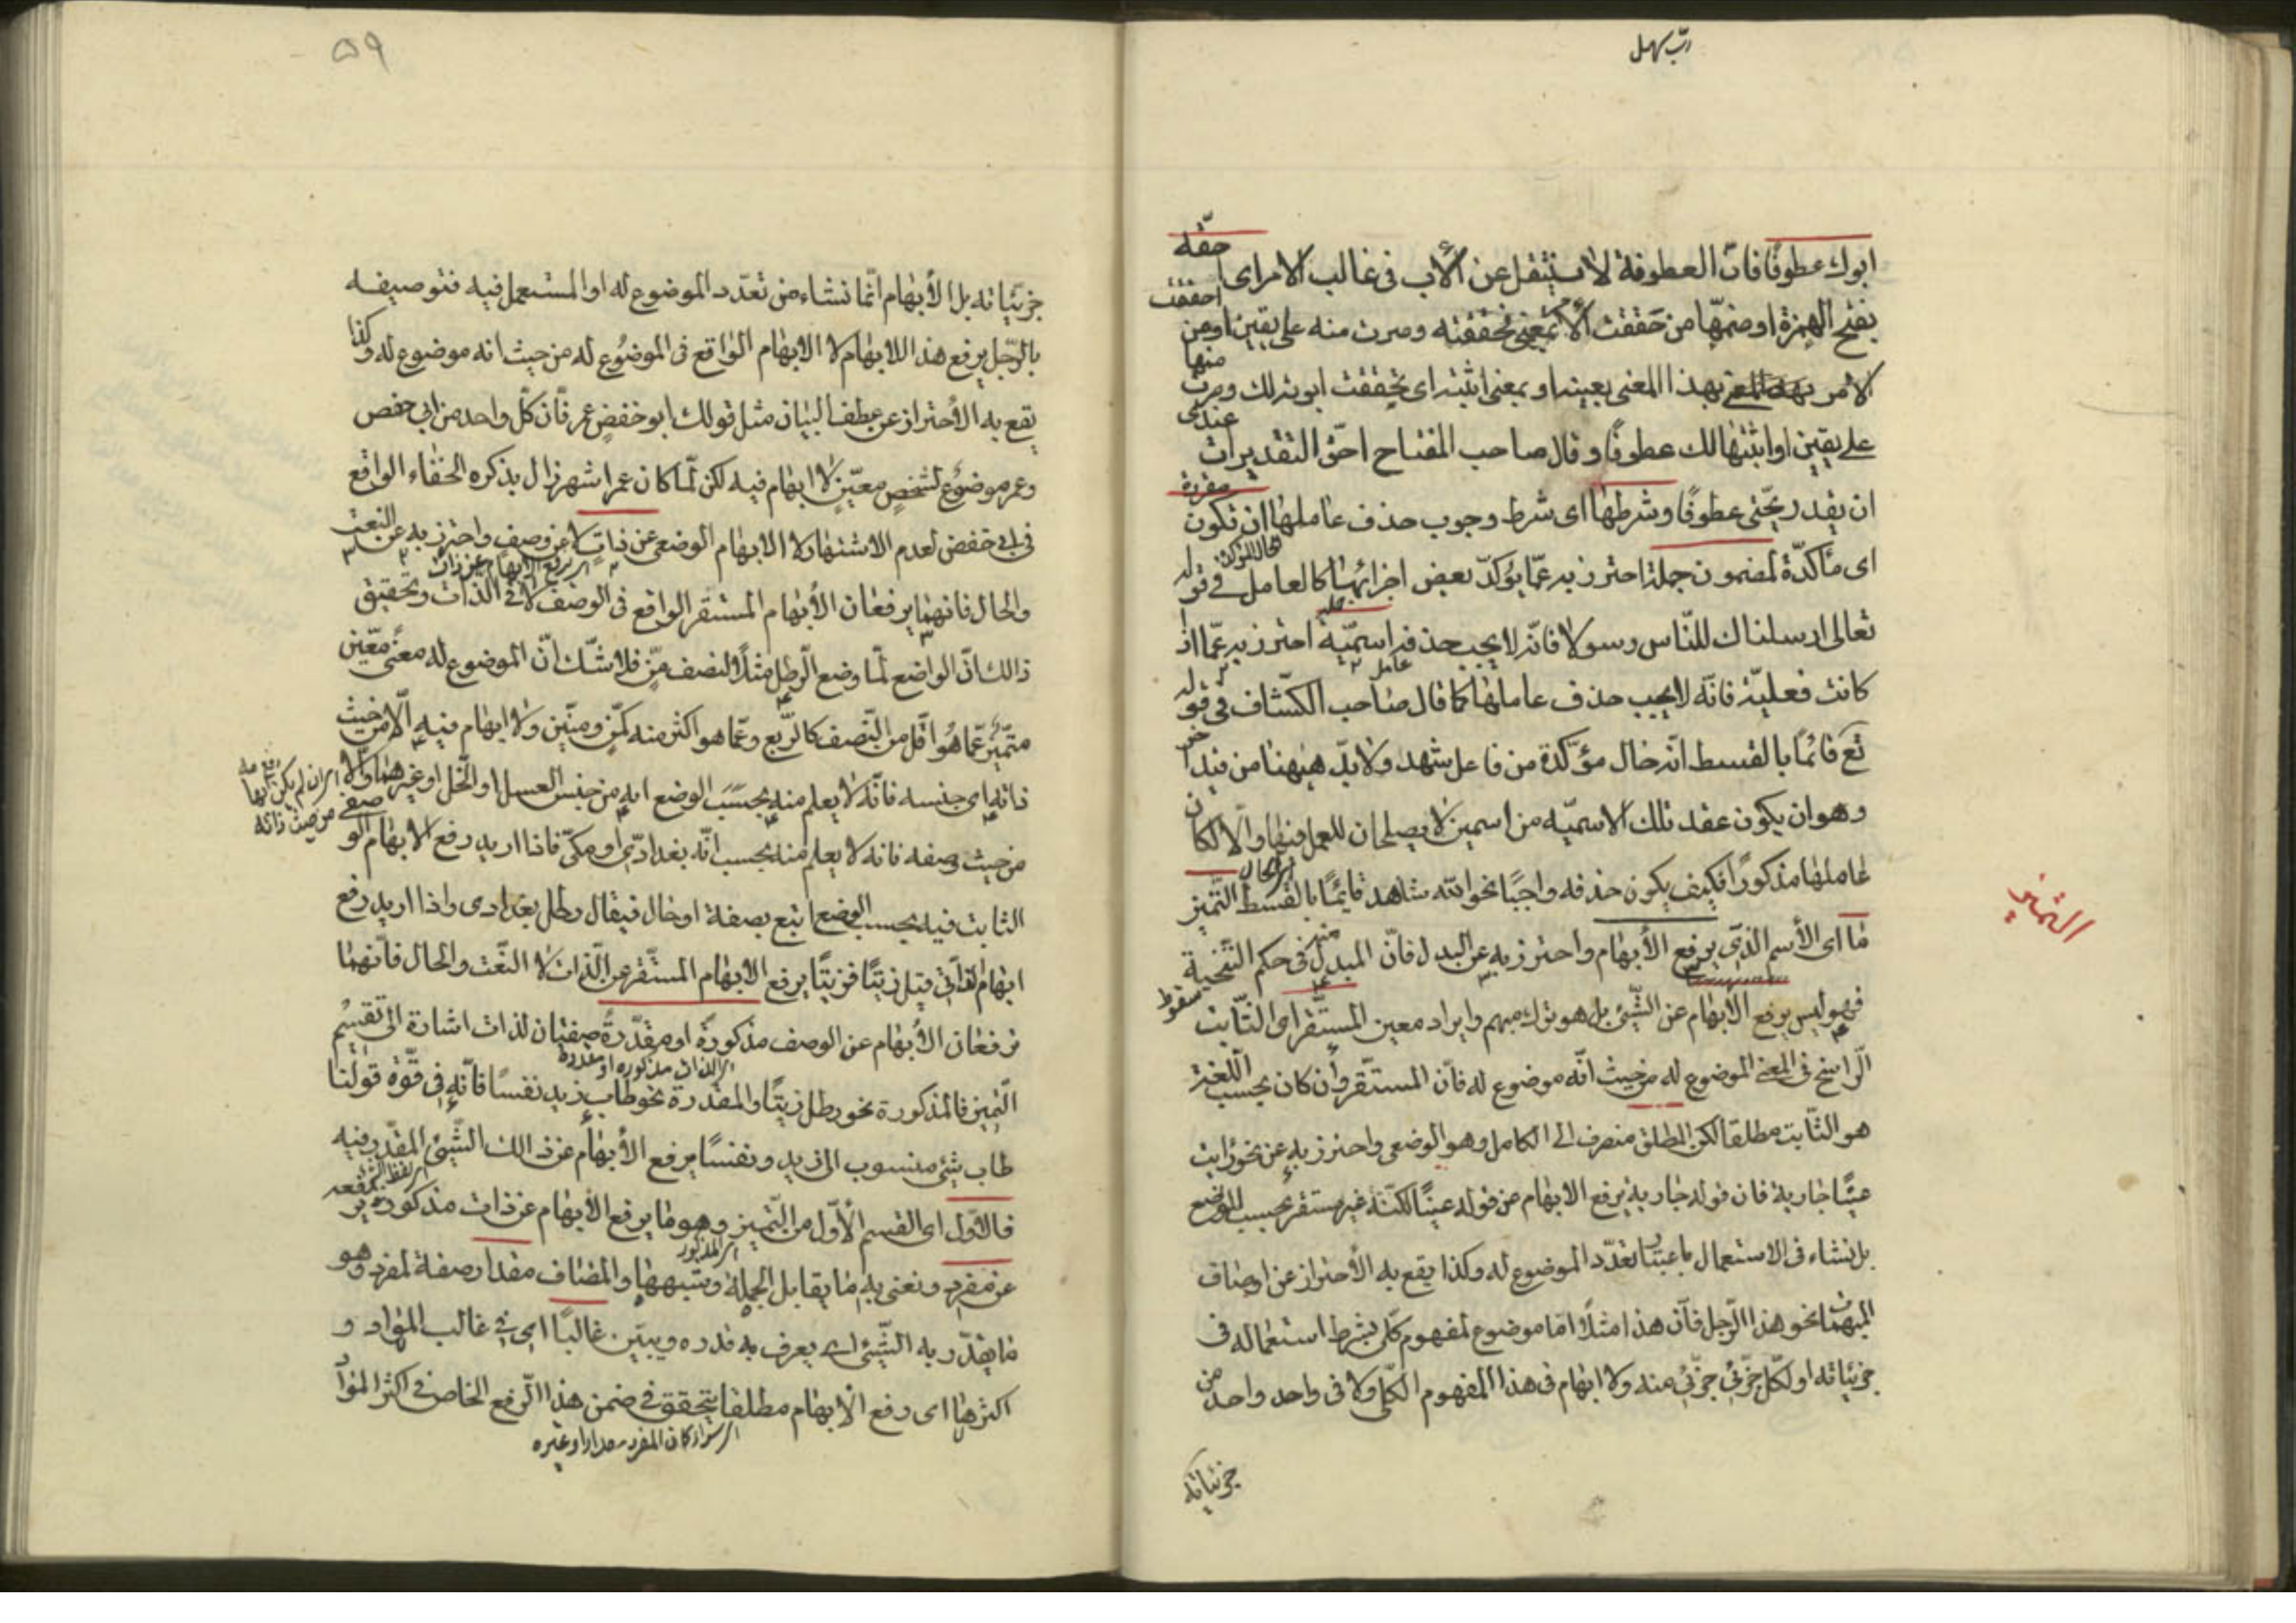 ربّ سهل
ابوك عطوفًا فانّ العطوفة لا تنتقل عن الأب فى غالب الامر اى احقّه
بفتح الهمزة او ضمّها من حَقَقت الأمر بمعنى تحققته وصرت منه على يقين او من احققت
الامر بهذا المعنى بعينه او بمعنى اثبته اى تحققت ابوته لك وصرت منها
على يقين او اثبتها لك عطوفًا وقال صاحب المفتاح احقّ التقديرات عندى
ان يقدر يحنى عطوفًا وشرطها اى شرط وجوب حذف عاملها ان تكون مقررة
اى مأكدّة لمضمون جملة احترز به عمّا يؤكدّ بعض اجزائها كالعامل فى قوله
تعالى ارسلناك للنّاس رسولا فانّه لا يجب حذفه اسميّة احترز به عمّا اذا
كانت فعليّة فانّه لا يجب حذف عاملها كما قال صاحب الكشّاف فى قوله
تع قائمًا بالقسط انّه حال مؤكّدة من فاعل شهد ولا بدّ هيهنا من قيد اخر
وهو ان يكون عقد تلك الاسميّه من اسمين لا يصلحان للعمل فيها والّا لكان
عاملها مذكورًا فكيف يكون حذفه واجبًا نحو الله شاهد قايمًا بالقسط التّميز
التميز
ما اى الأسم الذّى يرفع الأبهام واحترز به عن البدل فانّ المبدل منه فى حكم التّنحية
فهو ليس يرفع الأبهام عن الشّيئ بل هو ترك مبهم وايراد معين المستّقر اى الثّابت
الّراسخ فى المعنى الموضوع له من حيث انّه موضوع له فانّ المستقّر وان كان بحسب اللّغة
هو الثّابت مطلقا لكن المطلق منصرف الى الكامل وهو الوضعى واحترز به عن نحو رايت
عينًا جارية فان قوله جارية يرفع الابهام من قوله عينًا لكنّه غير مستقر بحسب الوضع
بل نشاء فى الاستعمال باعتبار تعدّد الموضوع له وكذا يقع به الأحتراز عن اوصاف
المبهمات نحو هذا الرّجل فانّ هذا مثلًا امّا موضوع لمفهوم كلّى بشرط استعماله فى
جزئياته او لكّل جزئى جزئى منه ولا ابهام فى هذا المفهوم الكلّى ولا فى واحد واحد من
جزئياته
٥٩
جزئياته بل الأبهام انّما نشاء من تعدّد الموضوع له او المستعمل فيه فتوصيفه
بالرّجل يرفع هذا الابهام لا الابهام الواقع فى الموضوع له من حيث انه موضوع له وكذا
يقع به الأحتراز عن عطف البيان مثل قولك ابو حفص عمر فانّ كلّ واحد من ابى حفص
وعمر موضوع لشخص معيّن لا ابهام فيه لكن لمّا كان عمر اشهر زال بذكره الخفاء الواقع
فى ابى حفص لعدم الاشتهار لا الابهام الوضعى عن ذات لا عن وصف واحترز به عن النعت
والحال فانهما يرفعان الأبهام المستقر الواقع فى الوصف لا فى الذّات وتحقيق
ذالك انّ الواضع لمّا وضع الرّطل مثلًا لنصف منّ فلا شكّ انّ الموضوع له معنى معيّن
متميّز عمّا هو اقل من النّصف كالرّبع وعمّا هو اكثر منه كمنّ ومنّين ولا ابهام فيه الّا من حيث
ذاته اى جنسه فانّه لا يعلم منه بحسب الوضع انه من جنس العسل او الخّل او غيرهما والّا
من حيث وصفه فانه لا يعلم منه بحسب انّه بغدادّى او مكىّ فاذا اريد رفع الابهام الوصفى
الثابت فيه بحسب الوضع اتبع بصفة او حال فيقال رطل بغدادى واذا اريد رفع
ابهام الذّاتى قيل زيتًا فزيتًا يرفع الابهام المستّقر عن الّذات لا النّعت والحال فانّهما
يرفعان الأبهام عن الوصف مذكورة او مقدّرة صفتان لذات اشارة الى تقسيم
التّميز فالمذكورة نحو رطل زيتًا والمقدرة نحو طاب زيد نفسًا فانّه فى قوّة قولنا
طاب شيئ منسوب الى زيد ونفسًا يرفع الأبهام عن ذالك الشّيئ المقدّر فيه
فالأوّل اى القسم الأوّل من التّميز وهو ما يرفع الأبهام عن ذات مذكورة يرفعه
عن مفرد ونعنى به ما يقابل الجملة وشبهها والمضاف مقدار صفة لمفرد وهو
ما يقدّر به الشّيئ اى يعرف به قدره ويبيّن غالبًا اى فى غالب المواد و
اكثرها اى رفع الأبهام مطلقا يتحقق فى ضمن هذا الرّفع الخاص فى اكثر الموادّ
اى سواء كان المفرد مقدارا او غيره